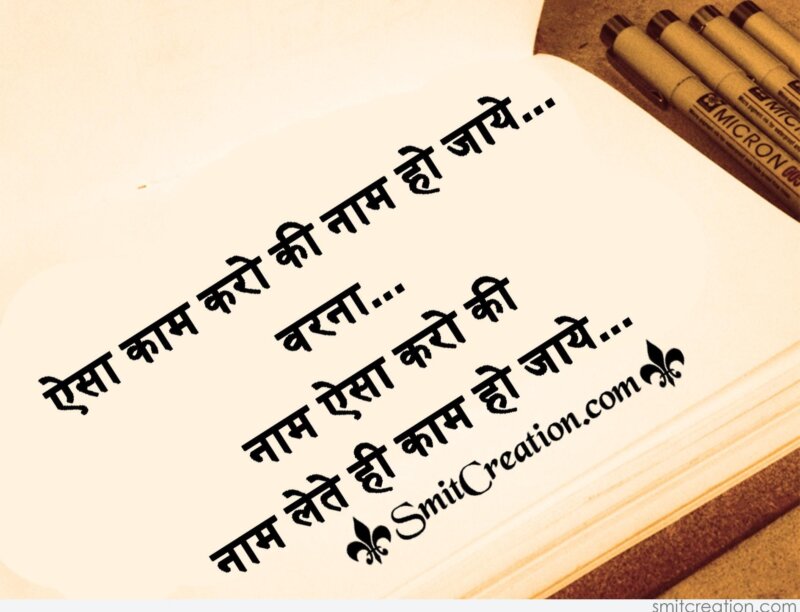 ऐसा काम करो की नाम हो जाये...
वरना...
नाम ऐसा करो की
नाम लेते ही काम हो जाये...
SmitCreation.com
MICRON 005
MICRON
MIC
smitcreation.com